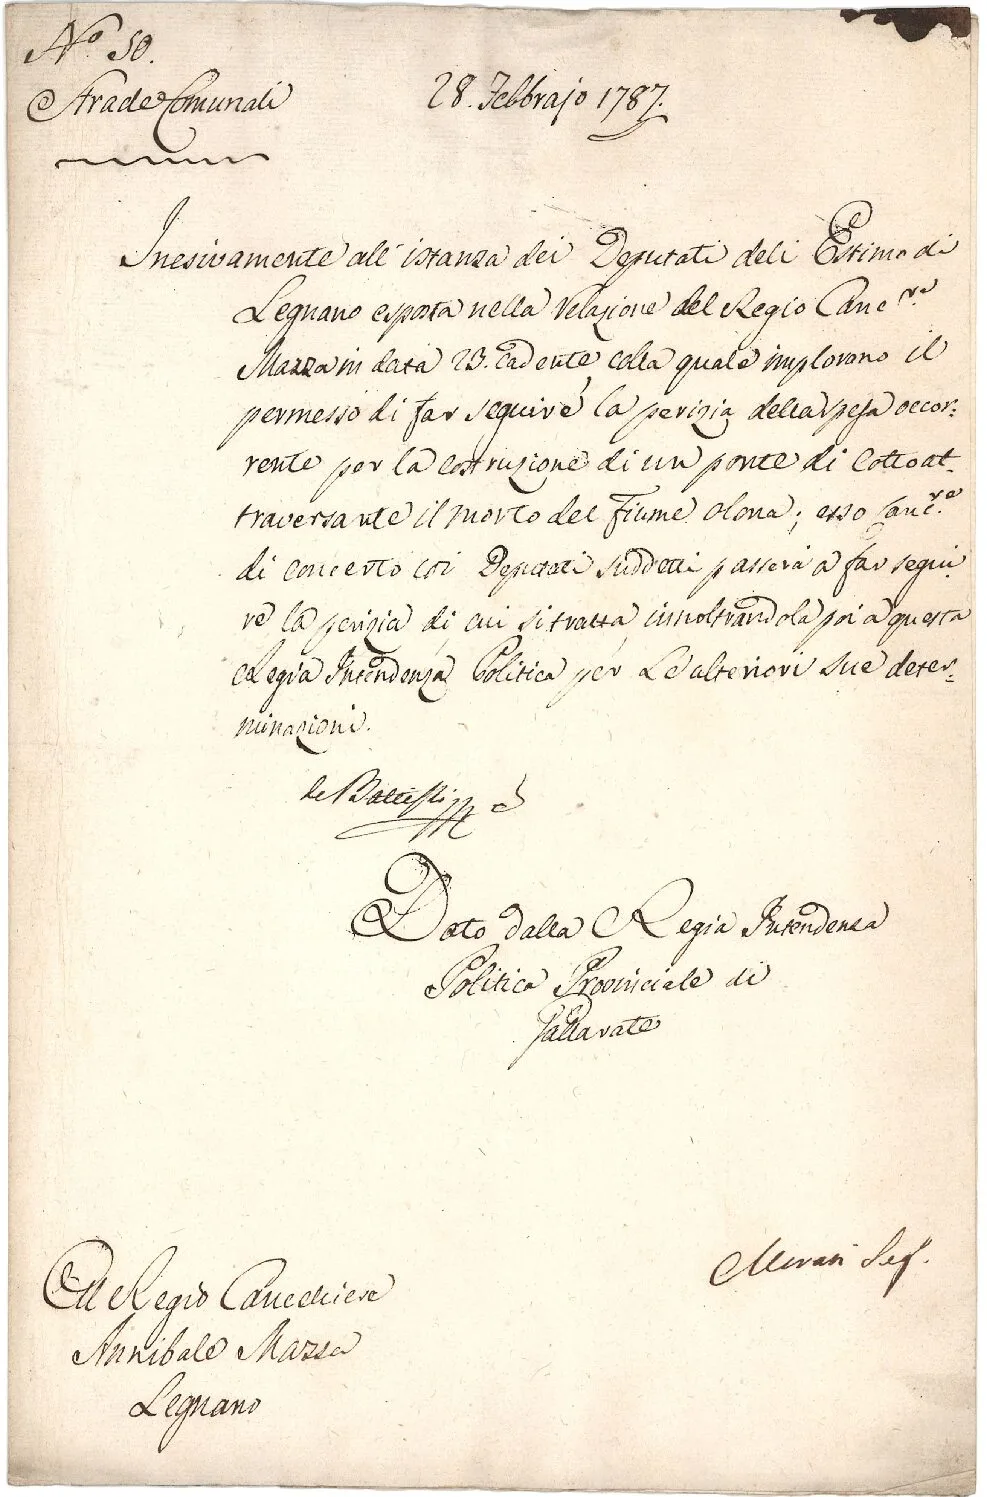 N.o 50.
Strade Comunali
28. Febbrajo 1787.
Inesivamente all'istanza dei Deputati dell Estimo di
Legnano esposta nella Relazione del Regio Canc.re
Mazza in data 23. cadente colla quale implorano il
permesso di far seguire la perizia della spesa occor=
rente per la costruzione di un ponte di Cotto at=
traversante il morto del fiume Olona; esso Canc.re
di concerto coi Deputati suddetti passerà a far segui
re la perizia di cui si tratta innoltrandola poi a questa
Regia Intendenza Politica per le ulteriori sue deter=
minazioni.
de Battisti
Dato dalla Regia Intendenza
Politica Provinciale di
Gallarate
Seg.
Al Regio Cancelliere
Annibale Mazza
Legnano